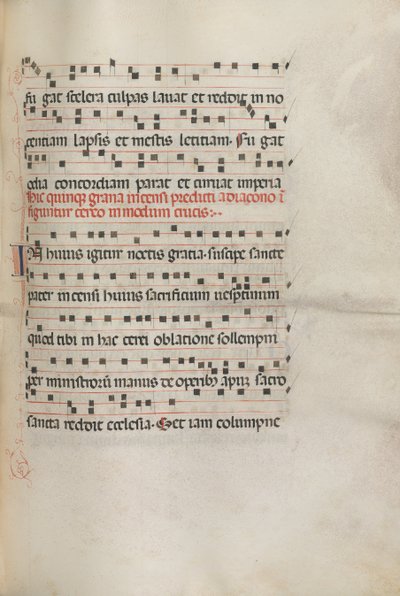 fu gat scelera culpas lauat et reddit in no
centiam lapsis et mestis letitiam. Fu gat
odia concordiam parat et curuat imperia
Hic quinq; grana incensi predicti a diacono ī
figuntur cereo in modum crucis:
In huius igitur noctis gratia. suscipe sancte
pater incensi huius sacrificium uespertinum
quod tibi in hac cerei oblatione sollempni
per ministrorū manus de operibꝫ apum sacro
sancta reddit ecclesia. Set iam columpne